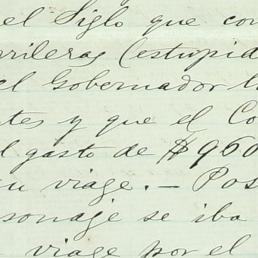 el Siglo que con
rrileras (estupid
el Gobernador l
tes y que el Co
l gasto de $960
su viage. — Pos
sonaje se iba
viage por el